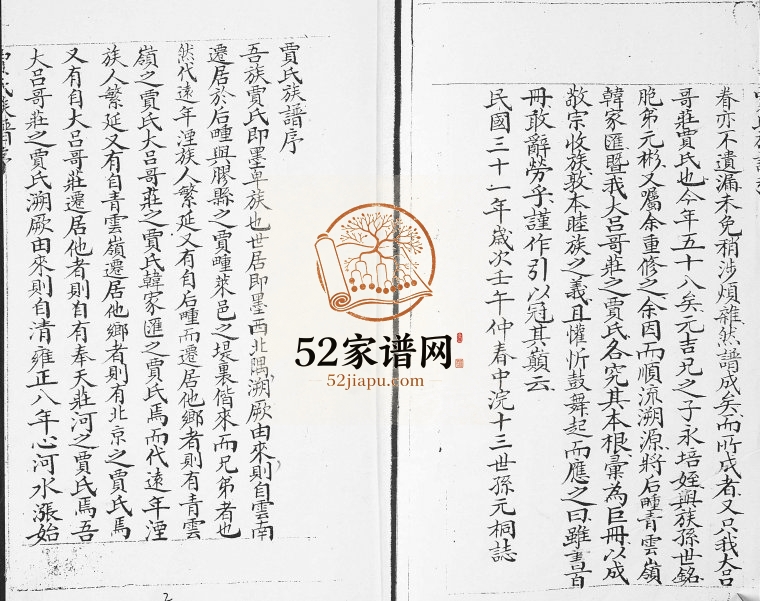 眷亦不遺漏未免稍涉煩雜然譜成矣而所成者又只我大呂
哥莊賈氏也今年五十八矣元吉兄之子永培姪與族孫世銘
胞弟元彬又屬余重修之余因而順流溯源將后疃青雲嶺
韓家匯暨我大呂哥莊之賈氏各究其本根彙為巨冊以成
敬宗收族敦本睦族之義且懽忻鼓舞起而應之曰雖書首
冊敢辭勞乎謹作引以冠其巔云
民國三十一年歲次壬午仲春中浣十三世孫元桐誌
賈氏族譜序
吾族賈氏即墨卑族也世居即墨西北隅溯厥由來則自雲南
遷居於后疃與膠縣之賈疃萊邑之埠裏偕來而兄弟者也
然代遠年湮族人繁延又有自后疃而遷居他鄉者則有青雲
嶺之賈氏大呂哥莊之賈氏韓家匯之賈氏焉而代遠年湮
族人繁延又有自青雲嶺遷居他鄉者則有北京之賈氏焉
又有自大呂哥莊遷居他者則自有奉天莊河之賈氏焉吾
大呂哥莊之賈氏溯厥由來則自清雍正八年心河水漲始
52家谱网
52jiapu.com